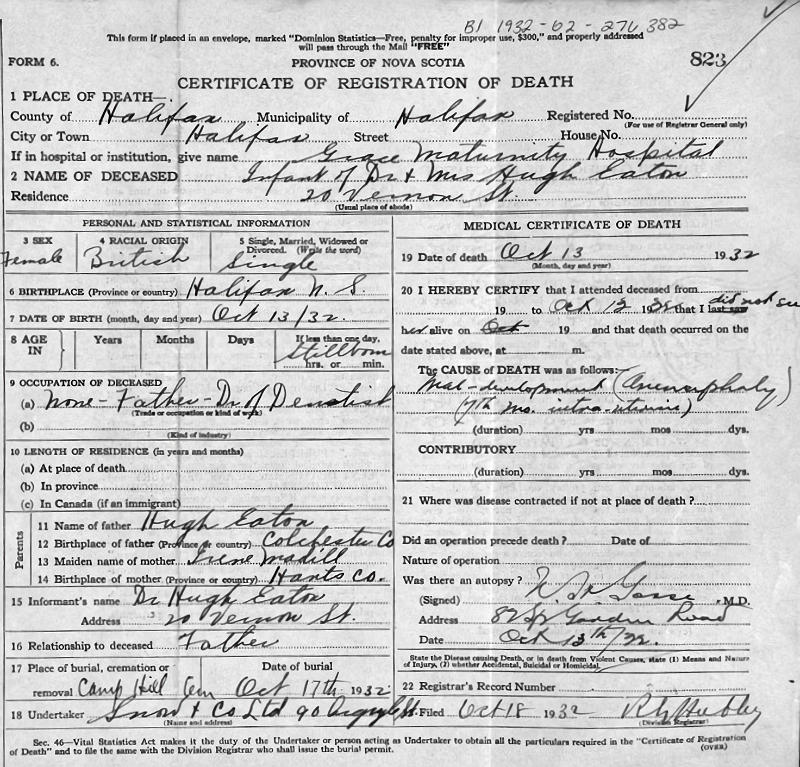 B1 1932-02-276382
This form if placed in an envelope, marked "Dominion Statistics—Free, penalty for improper use, $300," and properly addressed
will pass through the Mail "FREE"
FORM 6. PROVINCE OF NOVA SCOTIA 823
CERTIFICATE OF REGISTRATION OF DEATH
1 PLACE OF DEATH—.
County of Halifax Municipality of Halifax Registered No.
(For use of Registrar General only)
City or Town Halifax Street House No.
If in hospital or institution, give name Grace Maternity Hospital
2 NAME OF DECEASED Infant of Dr & Mrs Hugh Eaton
Residence 20 Vernon St.
(Usual place of abode)
PERSONAL AND STATISTICAL INFORMATION
3 SEX 4 RACIAL ORIGIN 5 Single, Married, Widowed or
Divorced. (Write the word)
Female British Single
6 BIRTHPLACE (Province or country) Halifax N. S.
7 DATE OF BIRTH (month, day and year) Oct 13/32.
8 AGE IN Years Months Days If less than one day,
Stillborn
hrs. or min.
9 OCCUPATION OF DECEASED
(a) None - Father - Dr of Dentist
(Trade or occupation or kind of work)
(b)
(Kind of industry)
10 LENGTH OF RESIDENCE (in years and months)
(a) At place of death
(b) In province
(c) In Canada (if an immigrant)
Parents
11 Name of father Hugh Eaton
12 Birthplace of father (Province or country) Colchester Co
13 Maiden name of mother Irene Madill
14 Birthplace of mother (Province or country) Hants Co.
15 Informant's name Dr Hugh Eaton
Address 20 Vernon St.
16 Relationship to deceased Father
17 Place of burial, cremation or Date of burial
removal Camp Hill Cem Oct 17th 1932
18 Undertaker Snow & Co Ltd 90 Argyle St.
(Name and address)
MEDICAL CERTIFICATE OF DEATH
19 Date of death Oct 13 1932
(Month, day and year)
20 I HEREBY CERTIFY that I attended deceased from
19 to Oct 12 that I last saw did not see
her alive on Oct 19 and that death occurred on the
date stated above, at m.
The CAUSE of DEATH was as follows:
Mal-development (Anencephaly)
(7th mo. intra-uterine)
(duration) yrs mos dys.
CONTRIBUTORY
(duration) yrs mos dys.
21 Where was disease contracted if not at place of death?
Did an operation precede death? Date of
Nature of operation
Was there an autopsy?
(Signed) M.D.
Address Road
Date Oct 13th/32.
State the Disease causing Death, or in death from Violent Causes, state (1) Means and Nature
of Injury, (2) whether Accidental, Suicidal or Homicidal.
22 Registrar's Record Number
Filed Oct 18 1932
(Division Registrar)
Sec. 46—Vital Statistics Act makes it the duty of the Undertaker or person acting as Undertaker to obtain all the particulars required in the "Certificate of Registration
of Death" and to file the same with the Division Registrar who shall issue the burial permit. (OVER)